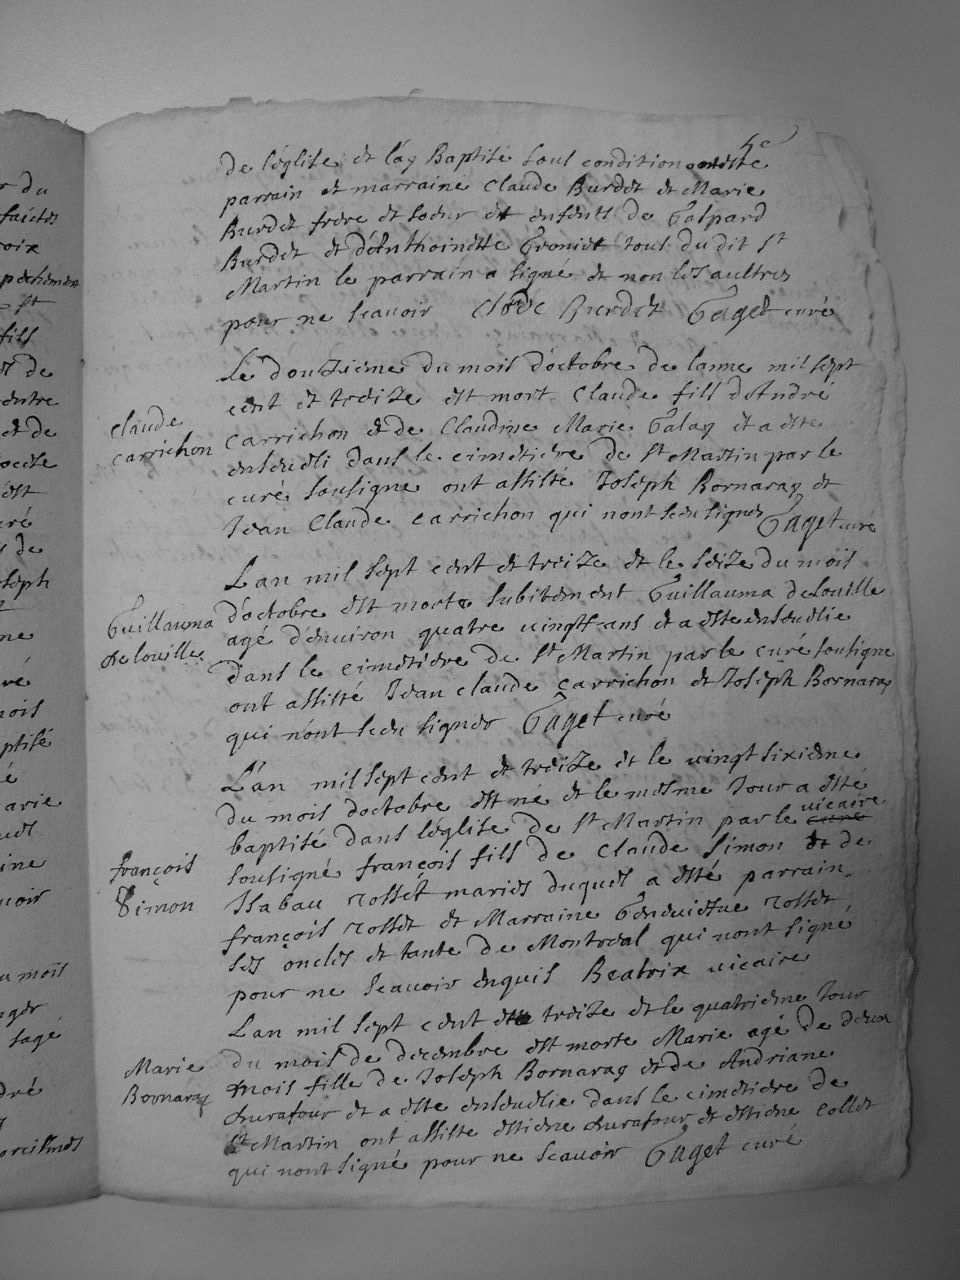 5e
de léglise et láy Baptisé sous condition
parrain et marraine Claude Burdet et Marie
Burdet frere et soeur et enfents de Gaspard
Burdet et dánthoinette tous du dit St
Martin le parrain a signé et non les aultres
pour ne scavoir Clode Burdet Gaget curé
Le douzieme du mois doctobre de lanne mil sept
cent et treize est mort Claude fils dAndré
claude
carrichon
carrichon et de Claudine Marie Galay et a este
enseueli dans le cimetiere de St Martin par le
curé sousigne ont assisté Joseph Bornaraz et
Jean Claude carrichon qui nont sceu signer Gaget curé
Lan mil sept cent et treize et le seize du mois
Guillauma
delouille
doctobre est morte subitement Guillauma delouille
agé denuiron quatre uingtt ans et a este enseuelie
dans le cimetiere de St Martin par le curé sousigne
ont assisté Jean claude carrichon et Joseph Bornaraz
qui nónt sceu signer Gaget curé
Lán mil sept cent et treize et le uingt sixieme
du mois doctobre est né et le mesme Jour a esté
baptisé dans léglise de St Martin par le uicaire
françois
Simon
sousigné françois fils de claude Simon et de
Isabau rosset maries duquel a esté parrain
françois rosset et Marraine Geneuieue rosset
ses oncles et tante de Montreal qui nont signé
pour ne scauoir enquis Beatrix uicaire
Lan mil sept cent et treize et le quatrieme Jour
Marie
Bornaraz
du mois de decembre est morte Marie agé de deux
mois fille de Joseph Bornaraz et de Andriane
durafour et a este enseuelie dans le cimetiere de
St Martin ont assiste estiene durafour et estiene collet
qui nont signé pour ne scauoir Gaget curé